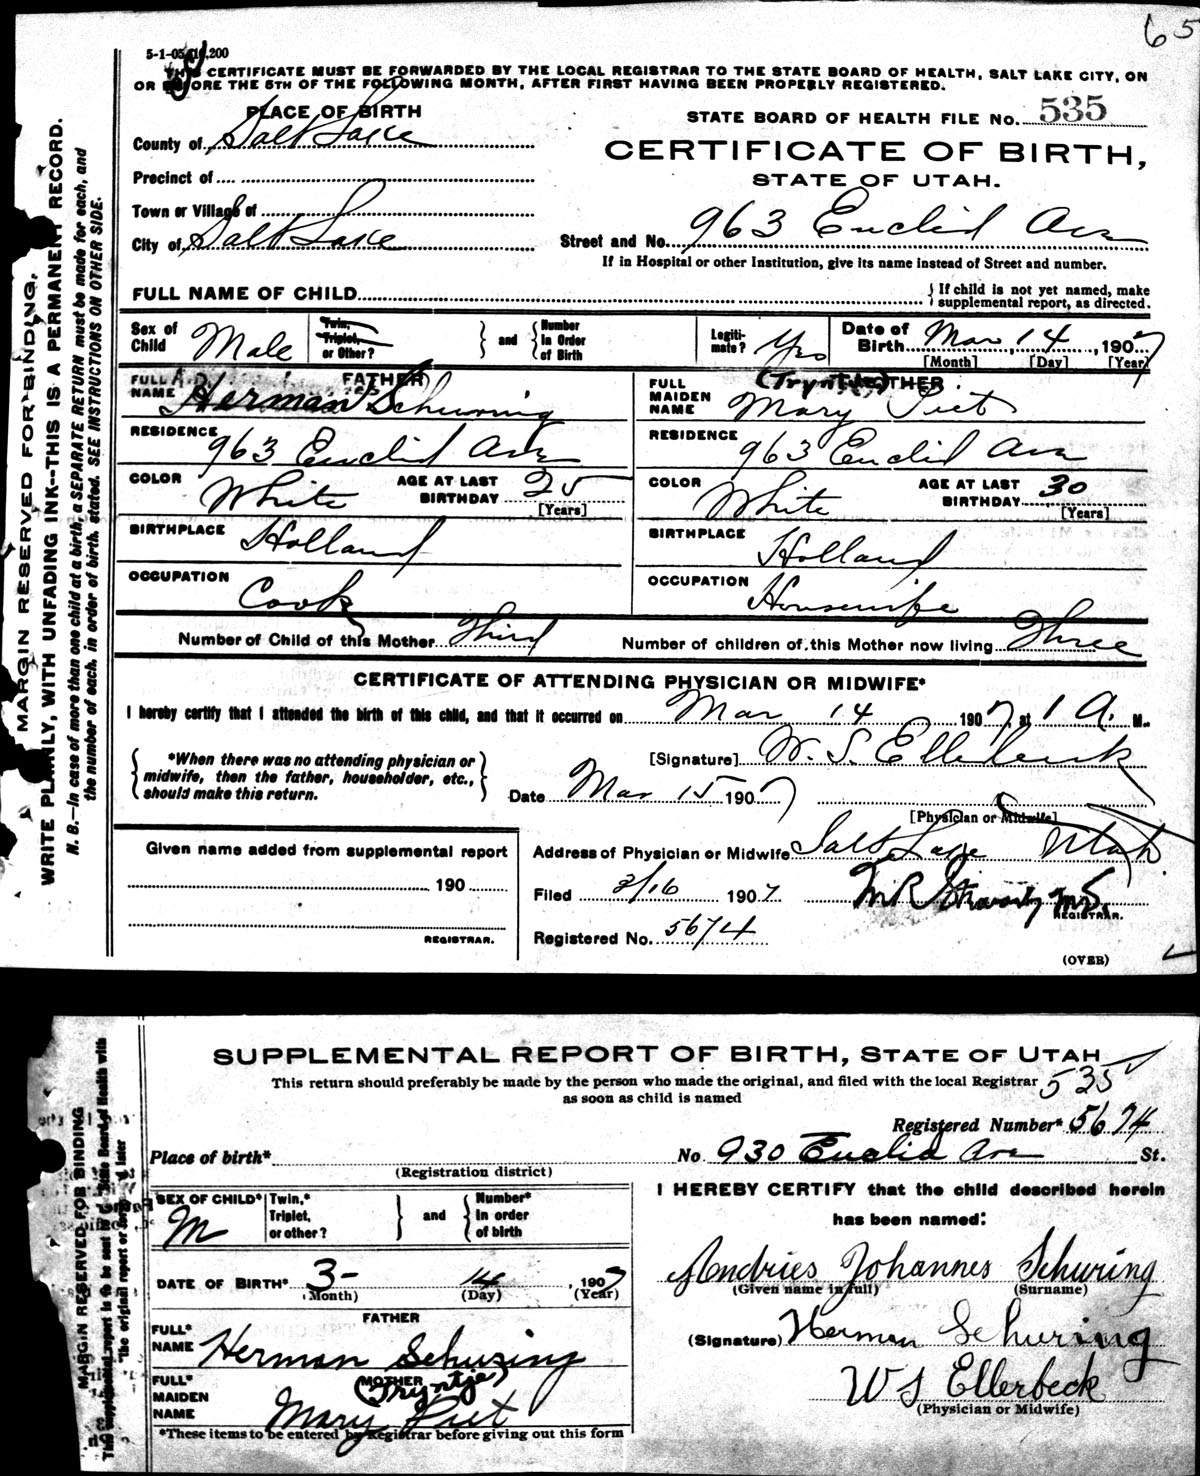 65
5-1-05 10,200
THIS CERTIFICATE MUST BE FORWARDED BY THE LOCAL REGISTRAR TO THE STATE BOARD OF HEALTH, SALT LAKE CITY, ON
OR BEFORE THE 5TH OF THE FOLLOWING MONTH, AFTER FIRST HAVING BEEN PROPERLY REGISTERED.
PLACE OF BIRTH
STATE BOARD OF HEALTH FILE No. 535
County of Salt Lake
CERTIFICATE OF BIRTH,
STATE OF UTAH.
Precinct of
Town or Village of
City of Salt Lake
Street and No. 963 Euclid Ave
If in Hospital or other Institution, give its name instead of Street and number.
FULL NAME OF CHILD
If child is not yet named, make
supplemental report, as directed.
Sex of Child Male
Twin, Triplet, or Other? and Number In Order of Birth
Legiti-mate? Yes
Date of Birth Mar 14, 1907
[Month] [Day] [Year]
FATHER
FULL NAME Herman Schuring
RESIDENCE 963 Euclid Ave
COLOR White AGE AT LAST BIRTHDAY 25
[Years]
BIRTHPLACE Holland
OCCUPATION Cook
(Tryntje) MOTHER
FULL MAIDEN NAME Mary Piet
RESIDENCE 963 Euclid Ave
COLOR White AGE AT LAST BIRTHDAY 30
[Years]
BIRTHPLACE Holland
OCCUPATION Housewife
Number of Child of this Mother Third Number of children of this Mother now living Three
CERTIFICATE OF ATTENDING PHYSICIAN OR MIDWIFE*
I hereby certify that I attended the birth of this child, and that it occurred on Mar 14 1907, at 1 A. M.
*When there was no attending physician or
midwife, then the father, householder, etc.,
should make this return.
[Signature] W. S. Ellerbeck
Date Mar 15 1907
[Physician or Midwife]
Given name added from supplemental report
190
REGISTRAR.
Address of Physician or Midwife Salt Lake Utah
Filed 3/16 1907
REGISTRAR.
Registered No. 5674
(OVER)
MARGIN RESERVED FOR BINDING.
WRITE PLAINLY, WITH UNFADING INK--THIS IS A PERMANENT RECORD.
N. B.—In case of more than one child at a birth, a SEPARATE RETURN must be made for each, and
the number of each, in order of birth, stated. SEE INSTRUCTIONS ON OTHER SIDE.
SUPPLEMENTAL REPORT OF BIRTH, STATE OF UTAH
This return should preferably be made by the person who made the original, and filed with the local Registrar
as soon as child is named
535
Registered Number* 5674
Place of birth*
(Registration district)
No. 930 Euclid Ave St.
SEX OF CHILD* M
Twin,* Triplet, or other? and Number* In order of birth
DATE OF BIRTH* 3- 14, 1907
(Month) (Day) (Year)
FATHER
FULL* NAME Herman Schuring
MOTHER (Tryntje)
FULL* MAIDEN NAME Mary Piet
*These items to be entered by Registrar before giving out this form
I HEREBY CERTIFY that the child described herein
has been named:
Andries Johannes Schuring
(Given name in full) (Surname)
(Signature) Herman Schuring
W S Ellerbeck
(Physician or Midwife)
MARGIN RESERVED FOR BINDING